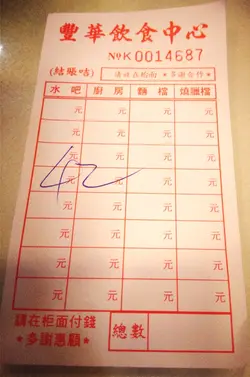 豐華飲食中心
NoK 0014687
(結賬咭)
請咭在抬面 ★ 多謝合作 ★
水吧 廚房 麵檔 燒臘檔
元 元 元 元
元 元 元 元
元 元 元 元
元 元 元 元
42
元 元 元 元
元 元 元 元
元 元 元 元
元 元 元 元
請在柜面付錢
★多謝惠顧★
總數